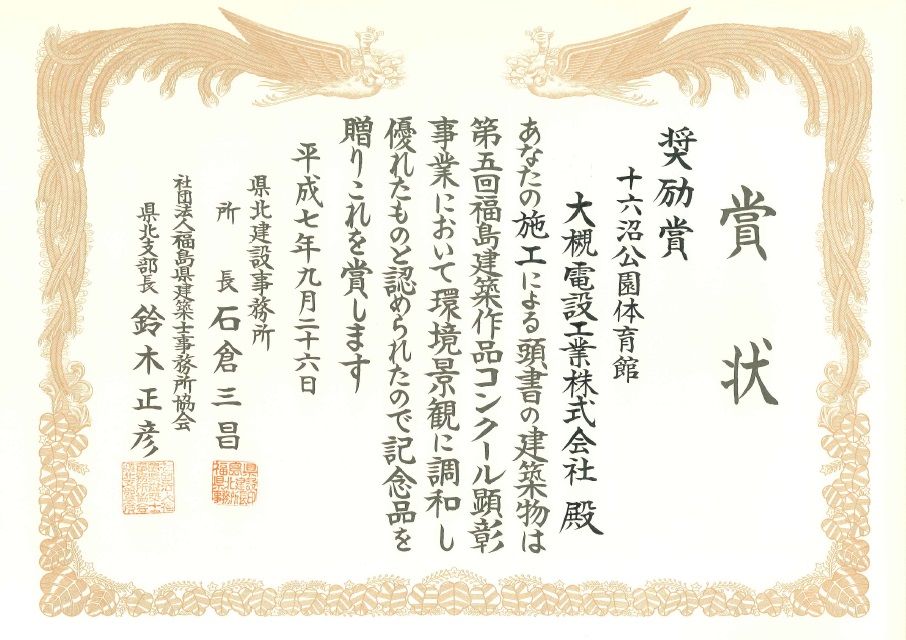 賞状
奨励賞
十六沼公園体育館
大槻電設工業株式会社 殿
あなたの施工による頭書の建築物は
第五回福島建築作品コンクール顕彰
事業において環境景観に調和し
優れたものと認められたので記念品を
贈りこれを賞します
平成七年九月二十六日
県北建設事務所
所長 石倉三昌
社団法人福島県建築士事務所協会
県北支部長 鈴木正彦